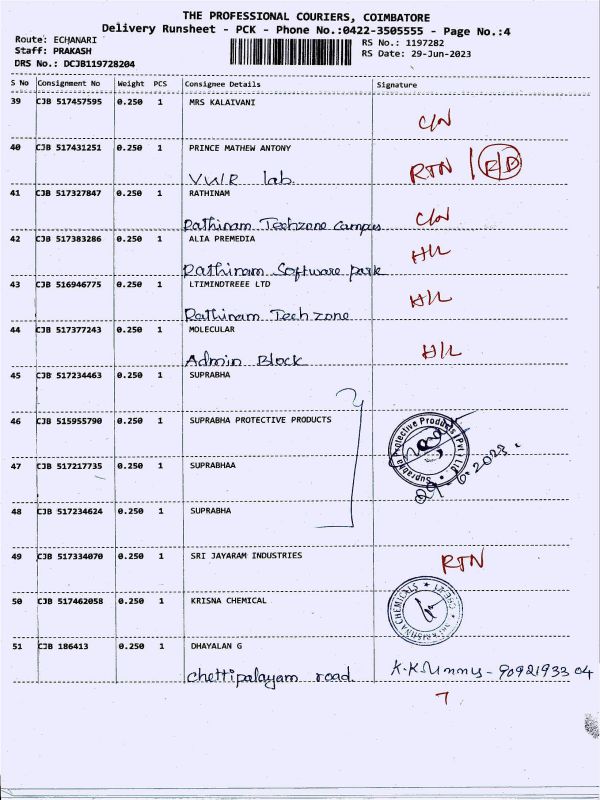 THE PROFESSIONAL COURIERS, COIMBATORE
Delivery Runsheet - PCK - Phone No.:0422-3505555 - Page No.:4
Route: ECHANARI
RS No.: 1197282
Staff: PRAKASH
RS Date: 29-Jun-2023
DRS No.: DCJB119728204
S No Consignment No Weight PCS Consignee Details Signature
39 CJB 517457595 0.250 1 MRS KALAIVANI
C/N
40 CJB 517431251 0.250 1 PRINCE MATHEW ANTONY
lab. RTN
41 CJB 517327847 0.250 1 RATHINAM
Rathinam Techzone campus C/N
42 CJB 517383286 0.250 1 ALIA PREMEDIA
Rathinam Software park H/L
43 CJB 516946775 0.250 1 LTIMINDTREEE LTD
Rathinam Techzone H/L
44 CJB 517377243 0.250 1 MOLECULAR
Admin Block H/L
45 CJB 517234463 0.250 1 SUPRABHA
46 CJB 515955790 0.250 1 SUPRABHA PROTECTIVE PRODUCTS
Suprabha Protective Products (Pvt) Ltd
47 CJB 517217735 0.250 1 SUPRABHAA
29.6.2023.
48 CJB 517234624 0.250 1 SUPRABHA
49 CJB 517334070 0.250 1 SRI JAYARAM INDUSTRIES
RTN
50 CJB 517462058 0.250 1 KRISNA CHEMICAL
51 CJB 186413 0.250 1 DHAYALAN G
chettipalayam road.
7